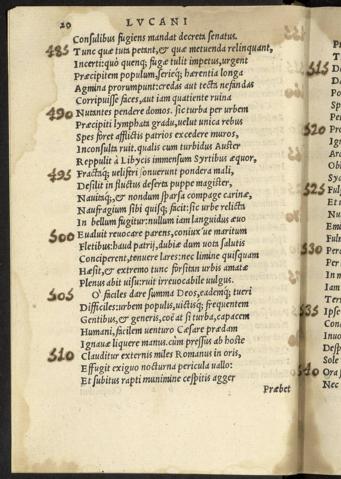 20 LVCANI
Consulibus fugiens mandat decreta senatus.
485 Tunc quæ tuta petant, & quæ metuenda relinquant,
Incerti: quò quenq; fugæ tulit impetus, urgent
Præcipitem populum, serieq; hærentia longa
Agmina prorumpunt: credas aut tecta nefandas
Corripuisse faces, aut iam quatiente ruina
490 Nutantes pendere domos. sic turba per urbem
Præcipiti lymphata gradu, uelut unica rebus
Spes foret afflictis patrios excedere muros,
Inconsulta ruit. qualis cum turbidus Auster
Reppulit à Libycis immensum Syrtibus æquor,
495 Fractaq; ueliferi sonuerunt pondera mali,
Desilit in fluctus deserta puppe magister,
Nauitaq;, & nondum sparsa compage carinæ,
Naufragium sibi quisq; facit: sic urbe relicta
In bellum fugitur: nullum iam languidus æuo
500 Eualuit reuocare parens, coniux ue maritum
Fletibus: haud patrij, dubiæ dum uota salutis
Conciperent, tenuere lares: nec limine quisquam
Hæsit, & extremo tunc forsitan urbis amatæ
Plenus abit uisu: ruit irreuocabile uulgus.
505 O faciles dare summa Deos, eademq; tueri
Difficiles: urbem populis, uictisq; frequentem
Gentibus, & generis, coëat si turba, capacem
Humani, facilem uenturo Cæsare prædam
Ignauæ liquere manus. cum pressus ab hoste
510 Clauditur externis miles Romanus in oris,
Effugit exiguo nocturna pericula uallo:
Et subitus rapti munimine cespitis agger
Præbet
515
520
525
530
535
540